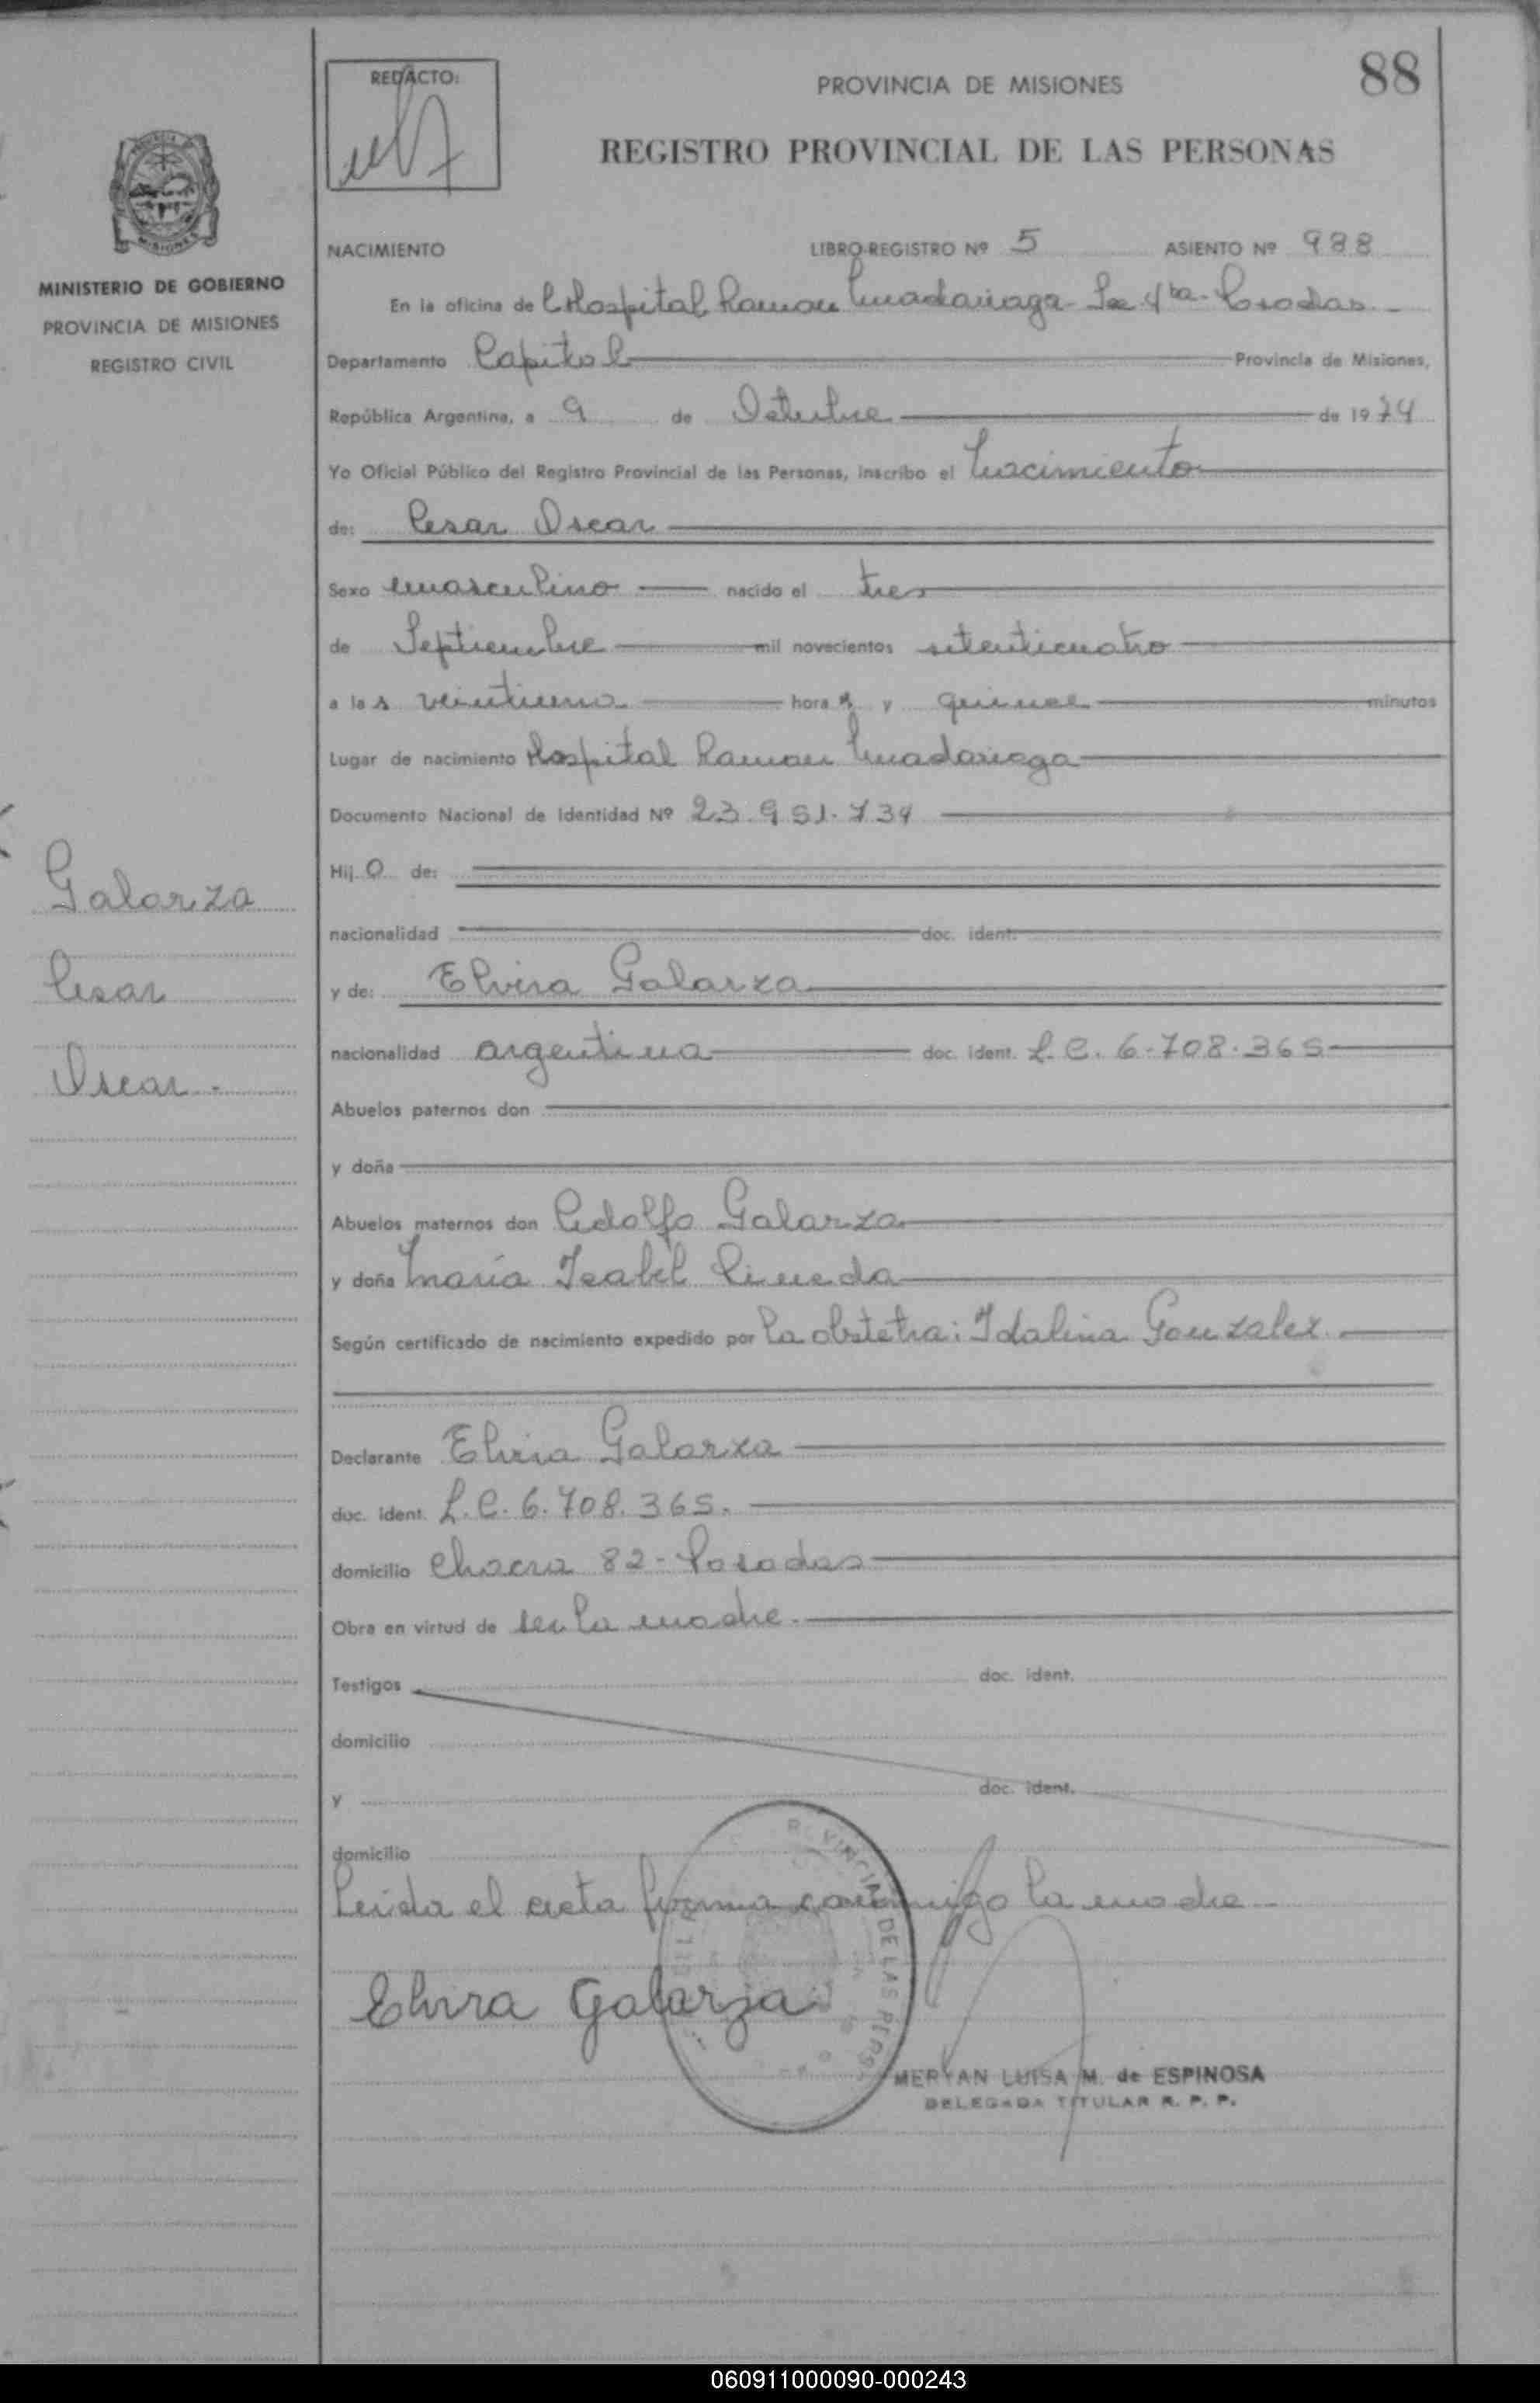 REDACTO:
PROVINCIA DE MISIONES
88
REGISTRO PROVINCIAL DE LAS PERSONAS
MISIONES
MINISTERIO DE GOBIERNO
PROVINCIA DE MISIONES
REGISTRO CIVIL
NACIMIENTO LIBRO-REGISTRO Nº 5 ASIENTO Nº 988
En la oficina de Hospital Ramon Madariaga - Sec 4ta - Posadas -
Departamento Capital Provincia de Misiones,
República Argentina, a 9 de Octubre de 1974
Yo Oficial Público del Registro Provincial de las Personas, inscribo el Nacimiento
de: Cesar Oscar
Sexo masculino nacido el tres
de Septiembre mil novecientos setenticuatro
a las veintiuna horas y quince minutos
Lugar de nacimiento Hospital Ramon Madariaga
Documento Nacional de Identidad Nº 23.951.734
Hijo de:
nacionalidad doc. ident.
y de: Elvira Galarza
nacionalidad argentina doc. ident. L.C. 6.708.365
Abuelos paternos don
y doña
Abuelos maternos don Adolfo Galarza
y doña Maria Isabel Pineda
Según certificado de nacimiento expedido por la obstetra: Idalina Gonzalez
Declarante Elvira Galarza
doc. ident. L.C. 6.708.365.
domicilio Chacra 82 - Posadas
Obra en virtud de ser la madre.
Testigos doc. ident.
domicilio
y doc. ident.
domicilio
Leida el acta firma conmigo la madre
Elvira Galarza
MERYAN LUISA M. de ESPINOSA
DELEGADA TITULAR R. P. P.
Galarza
Cesar
Oscar.
060911000090-000243